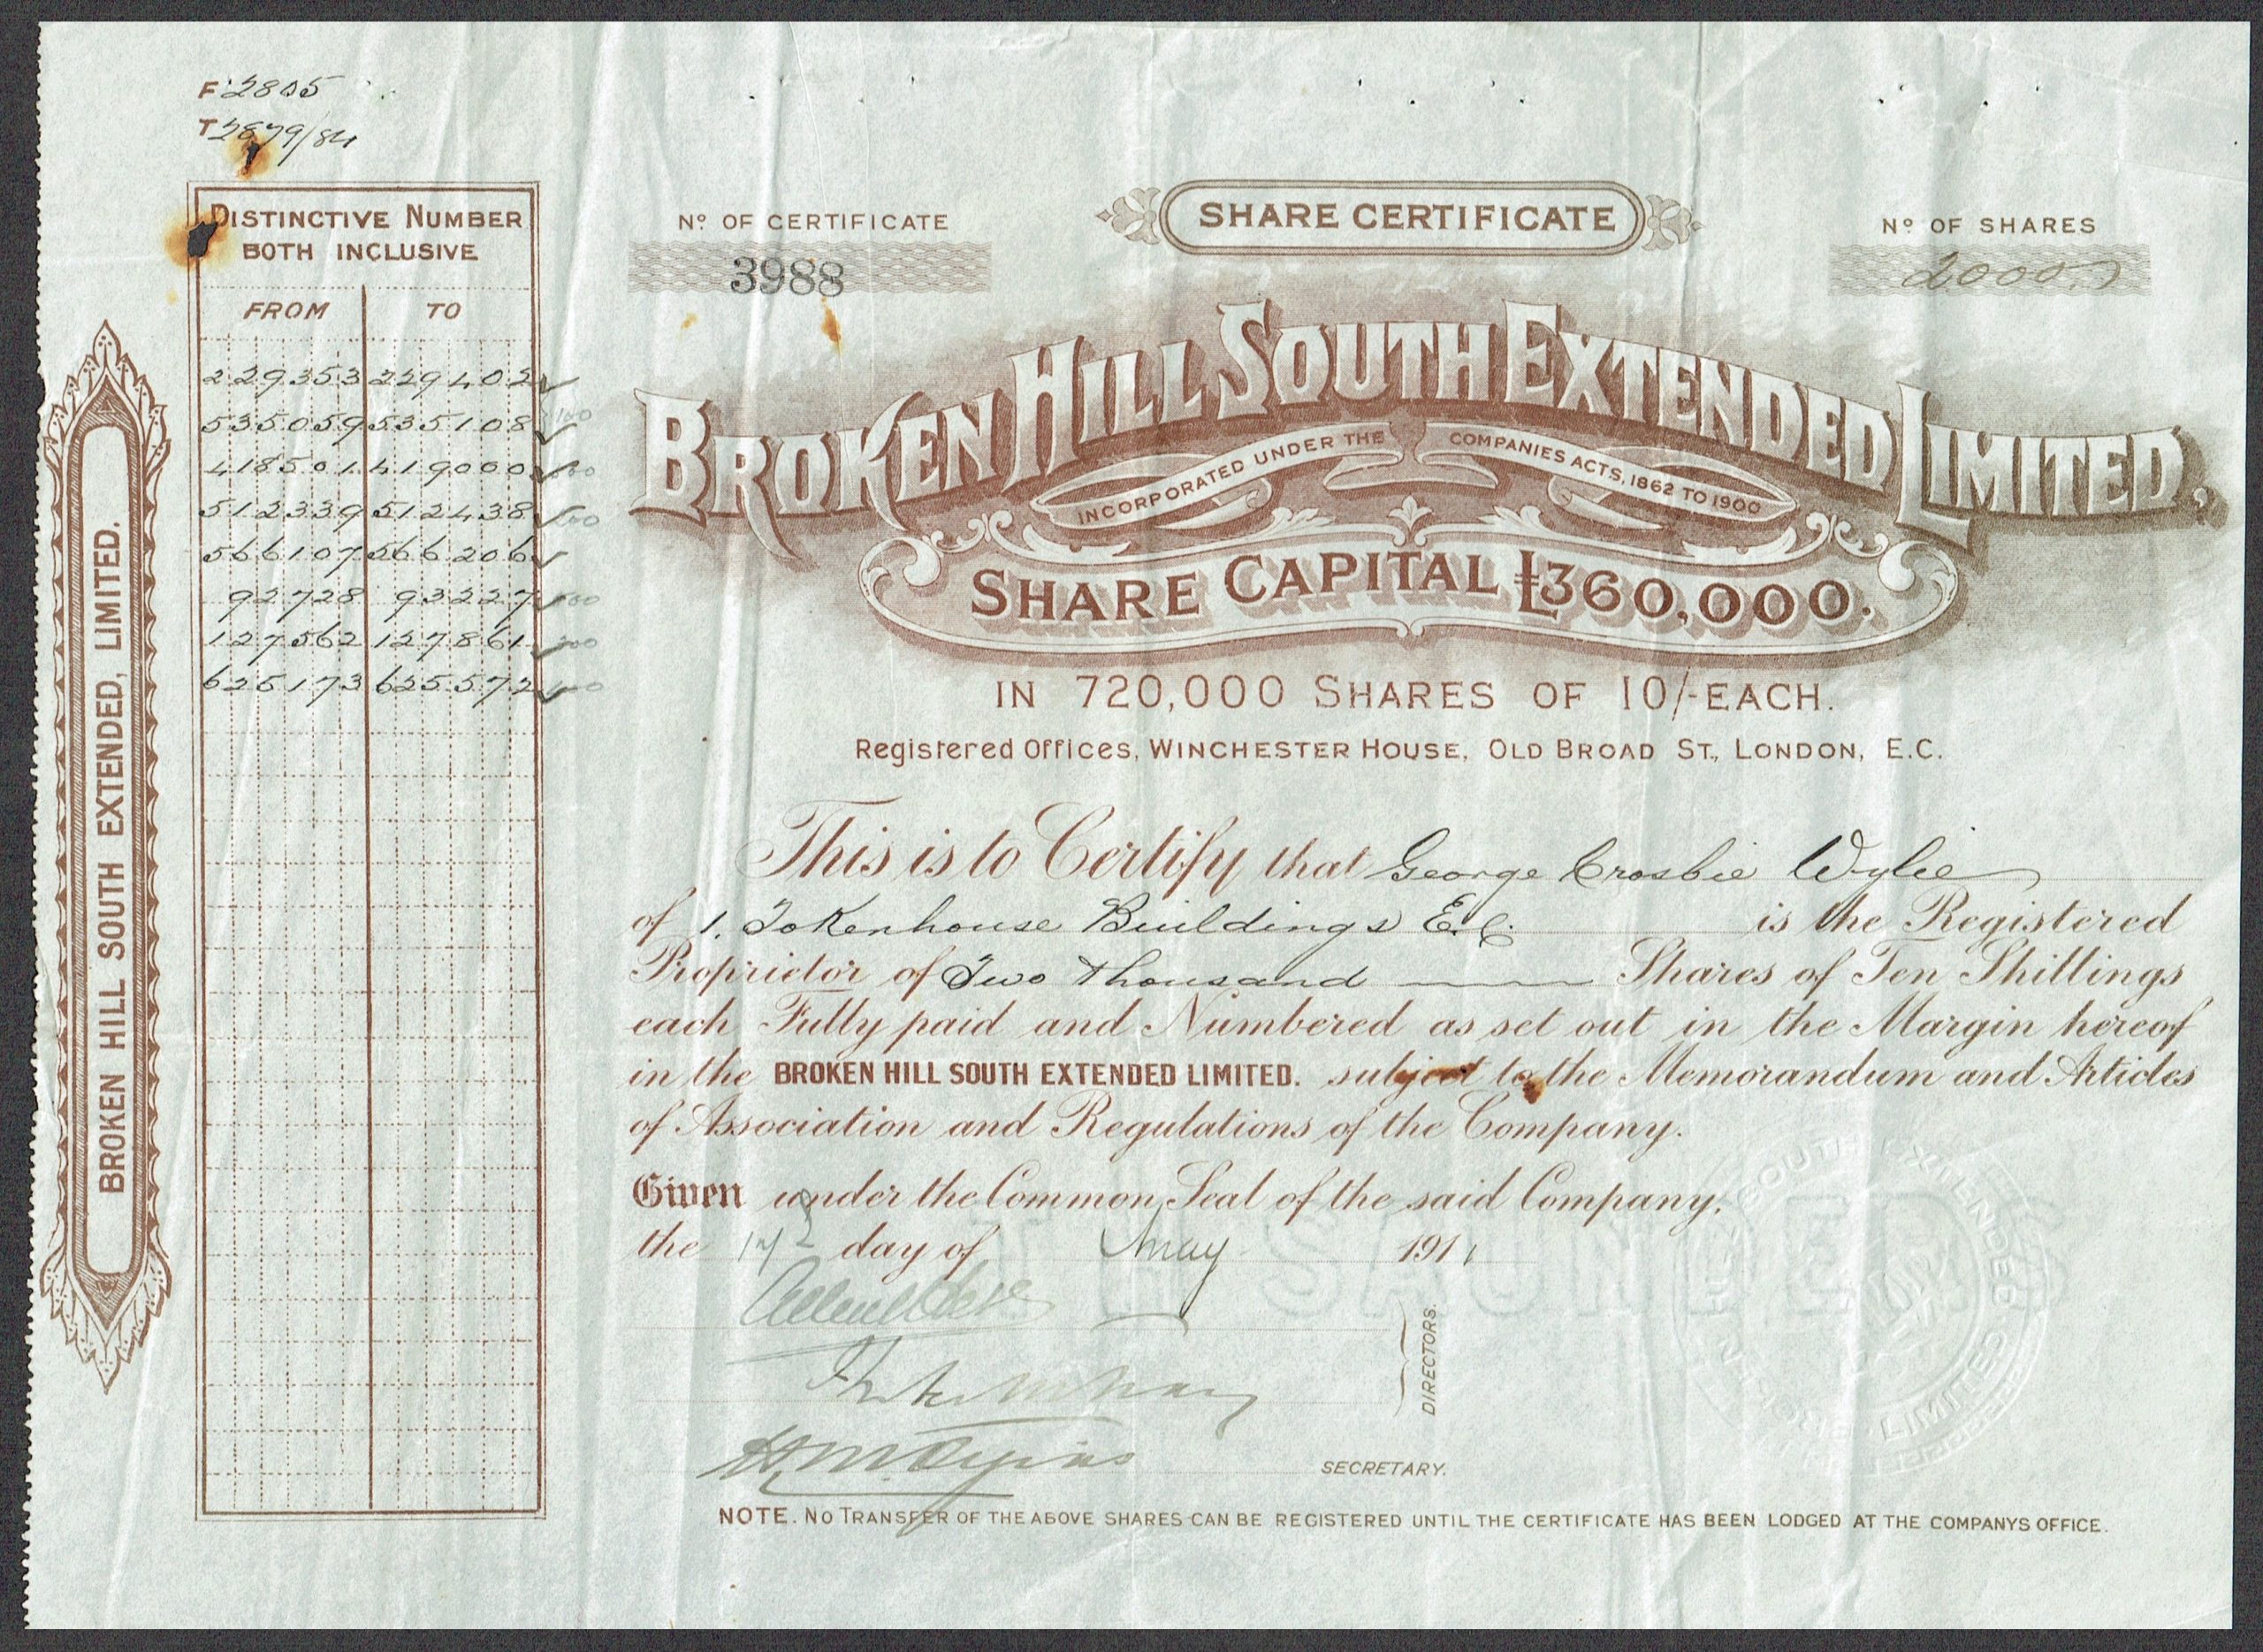 F 2805
T 2879/84
DISTINCTIVE NUMBER
BOTH INCLUSIVE
FROM TO
229353 229402
535059 535108 100
418501 419000 500
512339 512438 100
566107 566206
92728 93227 500
127562 127861 300
625173 625572 400
BROKEN HILL SOUTH EXTENDED, LIMITED.
Nº OF CERTIFICATE
3988
SHARE CERTIFICATE
Nº OF SHARES
2000
BROKEN HILL SOUTH EXTENDED LIMITED,
INCORPORATED UNDER THE COMPANIES ACTS, 1862 TO 1900
SHARE CAPITAL £360,000.
IN 720,000 SHARES OF 10/- EACH.
Registered Offices, WINCHESTER HOUSE, OLD BROAD ST., LONDON, E.C.
This is to Certify that George Crosbie Wylie
of 1. Tokenhouse Buildings E.C. is the Registered
Proprietor of Two thousand Shares of Ten Shillings
each Fully paid and Numbered as set out in the Margin hereof
in the BROKEN HILL SOUTH EXTENDED LIMITED. subject to the Memorandum and Articles
of Association and Regulations of the Company.
Given under the Common Seal of the said Company,
the 17 day of May 1911
DIRECTORS.
SECRETARY.
SOUTH EXTENDED
LIMITED
NOTE. NO TRANSFER OF THE ABOVE SHARES CAN BE REGISTERED UNTIL THE CERTIFICATE HAS BEEN LODGED AT THE COMPANYS OFFICE.